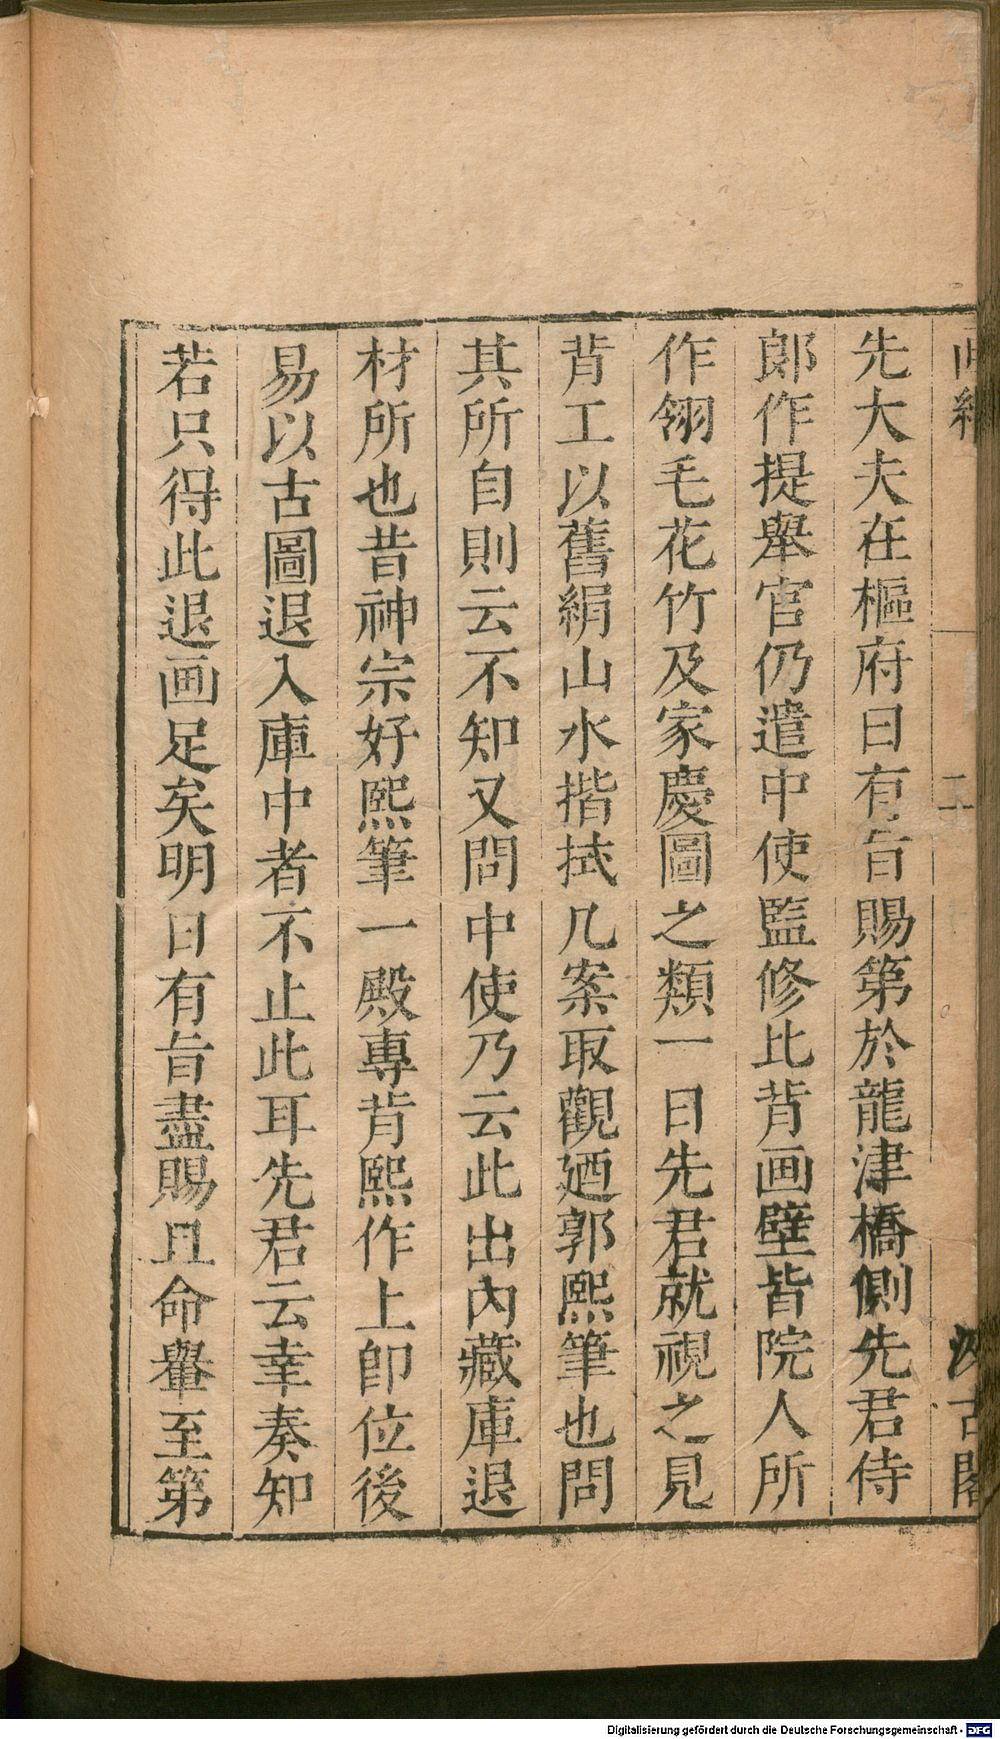 二
古閣
先大夫在樞府曰有旨賜第於龍津橋側先君侍
郎作提舉官仍遣中使監修比背画壁皆院人所
作翎毛花竹及家慶圖之類一日先君就視之見
背工以舊絹山水揩拭几案取觀廼郭熙筆也問
其所自則云不知又問中使乃云此出內藏庫退
材所也昔神宗好熙筆一殿專背熙作上卽位後
易以古圖退入庫中者不止此耳先君云幸奏知
若只得此退画足矣明日有旨盡賜且命轝至第
Digitalisierung gefördert durch die Deutsche Forschungsgemeinschaft - DFG